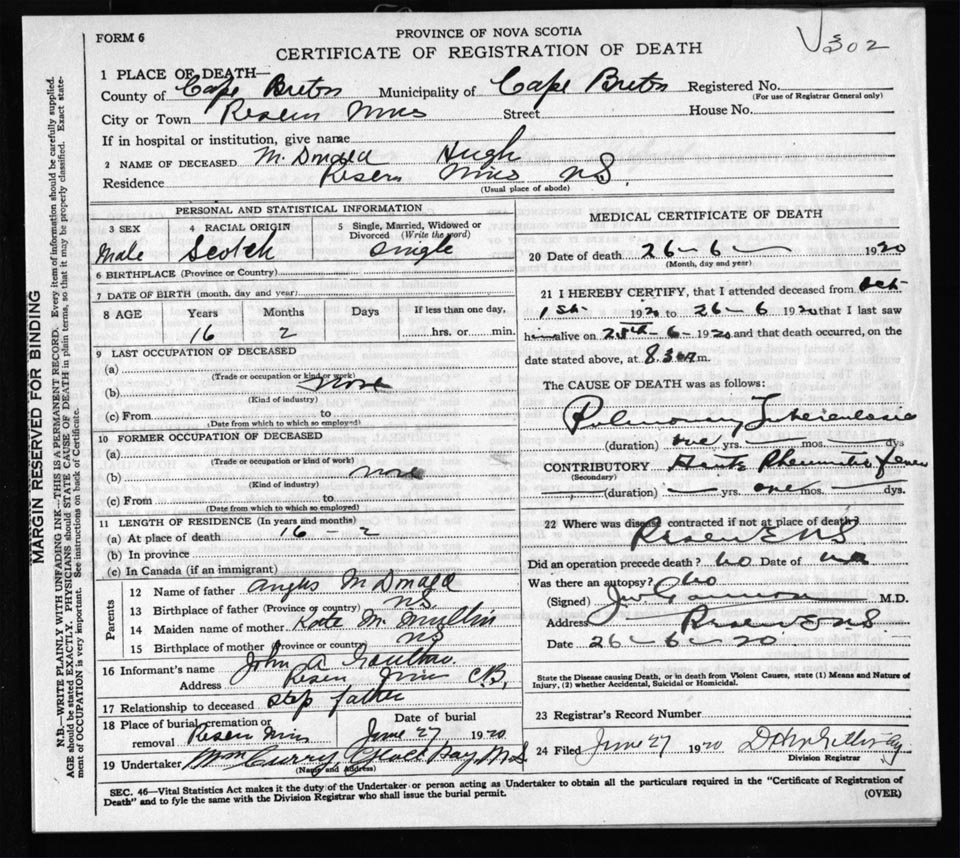 FORM 6
PROVINCE OF NOVA SCOTIA
CERTIFICATE OF REGISTRATION OF DEATH
302
1 PLACE OF DEATH—
County of Cape Breton Municipality of Cape Breton Registered No.
(For use of Registrar General only)
City or Town Reserve Mines Street House No.
If in hospital or institution, give name
2 NAME OF DECEASED McDonald Hugh
Residence Reserve Mines N.S.
(Usual place of abode)
PERSONAL AND STATISTICAL INFORMATION
3 SEX 4 RACIAL ORIGIN 5 Single, Married, Widowed or Divorced (Write the word)
Male Scotch Single
6 BIRTHPLACE (Province or Country)
7 DATE OF BIRTH (month, day and year)
8 AGE Years Months Days If less than one day,
16 2 hrs. or min.
9 LAST OCCUPATION OF DECEASED
(a)
(Trade or occupation or kind of work)
(b) None
(Kind of industry)
(c) From to
(Date from which to which so employed)
10 FORMER OCCUPATION OF DECEASED
(a)
(Trade or occupation or kind of work)
(b) None
(Kind of industry)
(c) From to
(Date from which to which so employed)
11 LENGTH OF RESIDENCE (In years and months)
(a) At place of death 16 – 2
(b) In province
(c) In Canada (if an immigrant)
Parents
12 Name of father Angus McDonald
13 Birthplace of father (Province or country) NS.
14 Maiden name of mother Kate McMullin
15 Birthplace of mother (Province or country) NS
16 Informant's name John A
Address Reserve Mines C.B.
17 Relationship to deceased Step father
18 Place of burial, cremation or removal Reserve Mines Date of burial June 27 1920
19 Undertaker Wm Curry, Glace Bay, N.S
(Name and Address)
MEDICAL CERTIFICATE OF DEATH
20 Date of death 26 – 6 – 1920
(Month, day and year)
21 I HEREBY CERTIFY, that I attended deceased from Oct
1st 1920 to 26 – 6 1920 that I last saw
h alive on 25th – 6 – 1920 and that death occurred, on the
date stated above, at 8.30 m.
The CAUSE OF DEATH was as follows:
Pulmonary Tuberculosis
(duration) one yrs. — mos. — dys
CONTRIBUTORY Rheumatic fever
(Secondary)
(duration) — yrs. one mos. — dys.
22 Where was disease contracted if not at place of death?
Reserve NS
Did an operation precede death? No Date of
Was there an autopsy? No
(Signed) M.D.
Address Reserve NS.
Date 26 – 6 – 20
State the Disease causing Death, or in death from Violent Causes, state (1) Means and Nature of
Injury, (2) whether Accidental, Suicidal or Homicidal.
23 Registrar's Record Number
24 Filed June 27 1920
Division Registrar
SEC. 46—Vital Statistics Act makes it the duty of the Undertaker or person acting as Undertaker to obtain all the particulars required in the "Certificate of Registration of
Death" and to fyle the same with the Division Registrar who shall issue the burial permit.
(OVER)
MARGIN RESERVED FOR BINDING
N.B.—WRITE PLAINLY, WITH UNFADING INK—THIS IS A PERMANENT RECORD. Every item of information should be carefully supplied.
AGE should be stated EXACTLY. PHYSICIANS should STATE CAUSE OF DEATH in plain terms, so that it may be properly classified. Exact statement
of OCCUPATION is very important. See instructions on back of Certificate.